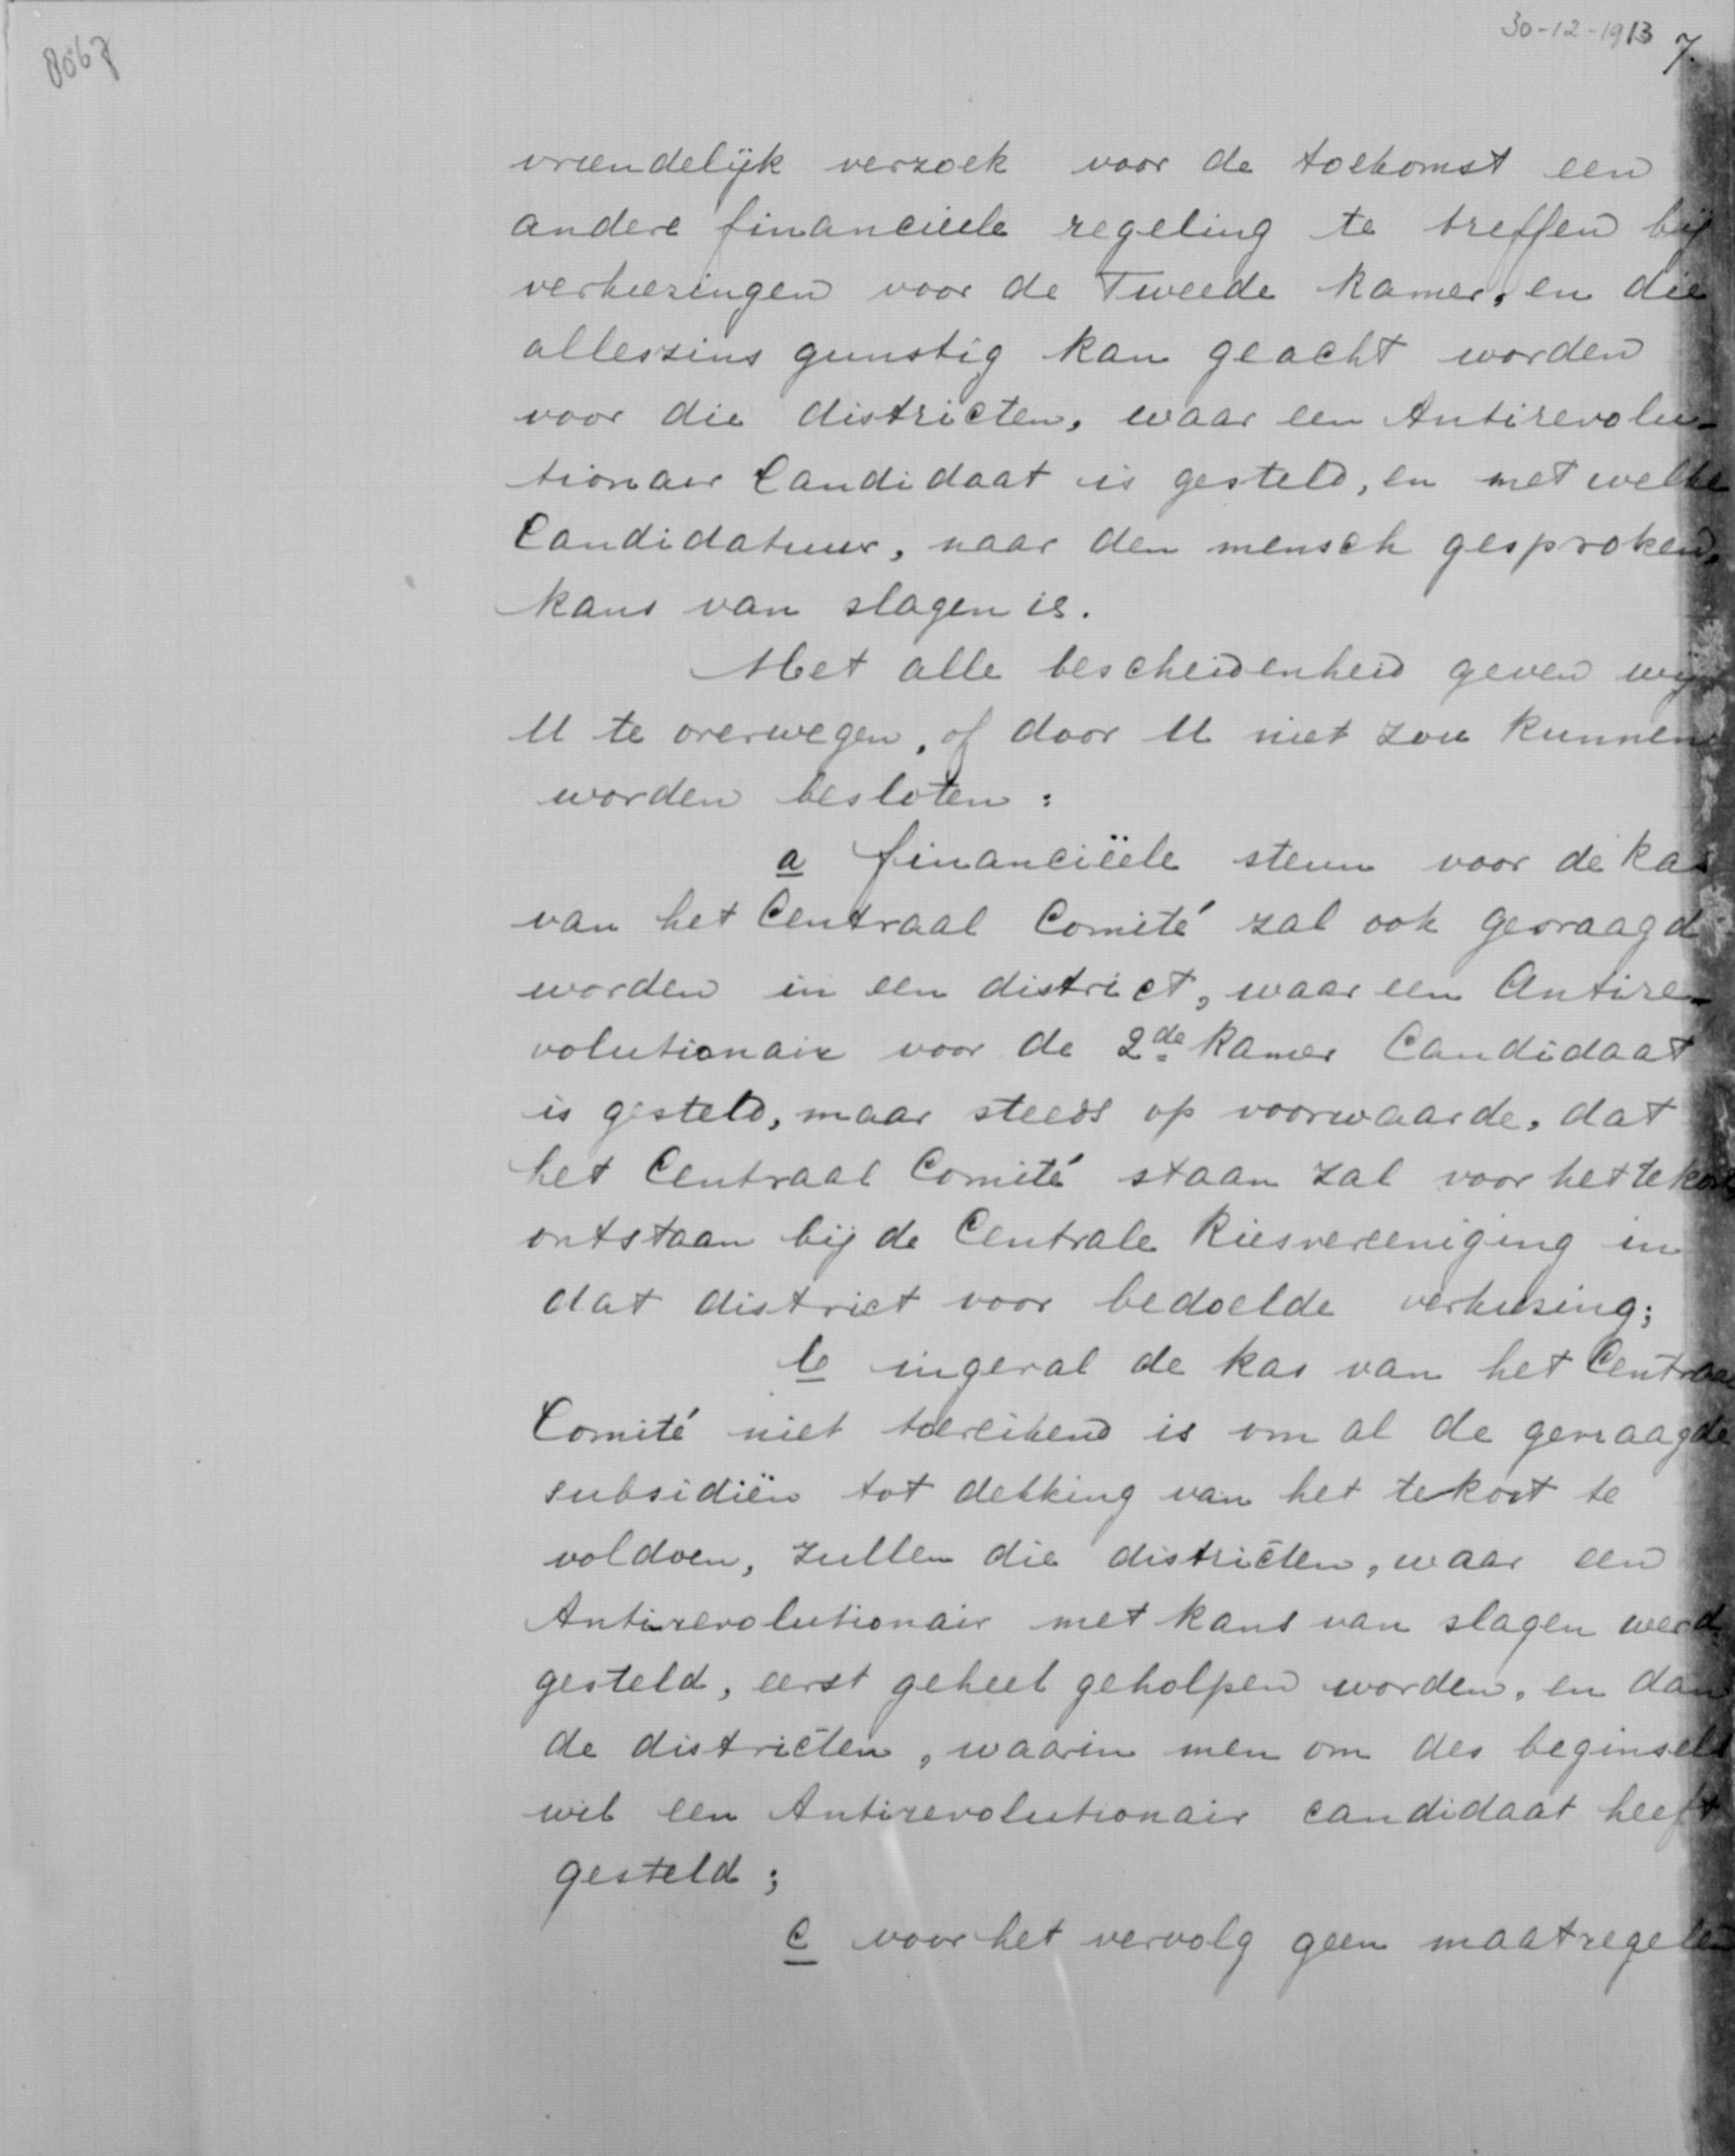 30-12-1913 7.
8067
vriendelijk verzoek voor de toekomst een
andere financieele regeling te treffen bij
verkiezingen voor de Tweede Kamer, en die
alleszins gunstig kan geacht worden
voor die districten, waar een Antirevolu-
tionair Candidaat is gesteld, en met welke
Candidatuur, naar den mensch gesproken,
kans van slagen is.
Met alle bescheidenheid geven wij
U te overwegen, of door U niet zou kunnen
worden besloten:
a financiëele steun voor de kas
van het Centraal Comité zal ook gevraagd
worden in een district, waar een Antire-
volutionair voor de 2de Kamer Candidaat
is gesteld, maar steeds op voorwaarde, dat
het Centraal Comité staan zal voor het tekort
ontstaan bij de Centrale Kiesvereeniging in
dat district voor bedoelde verkiezing;
b ingeval de kas van het Centraal
Comité niet toereikend is om al de gevraagde
subsidiën tot dekking van het tekort te
voldoen, zullen die districten, waar een
Antirevolutionair met kans van slagen werd
gesteld, eerst geheel geholpen worden, en dan
de districten, waarin men om des beginsels
wil een Antirevolutionair candidaat heeft
gesteld;
c voor het vervolg geen maatregelen